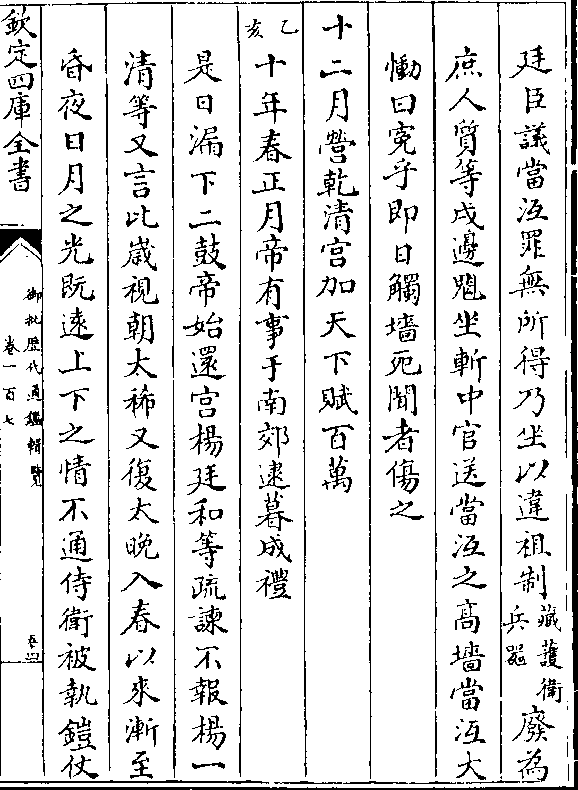 廷臣議當沍罪無所得乃坐以違祖制藏護衛兵器廢為
庶人質等戍邊䰟坐斬中官送當沍之髙墻當沍大
慟曰寃乎即日觸墻死聞者傷之
十二月營乾清宫加天下賦百萬
乙亥十年春正月帝有事于南郊逮暮成禮
是日漏下二鼓帝始還宫楊廷和等疏諫不報楊一
清等又言比歲視朝太稀又復太晚入春以來漸至
昏夜日月之光既遠上下之情不通侍衛被執鎧仗
欽定四庫全書
御批歷代通鑑輯覽
卷一百七